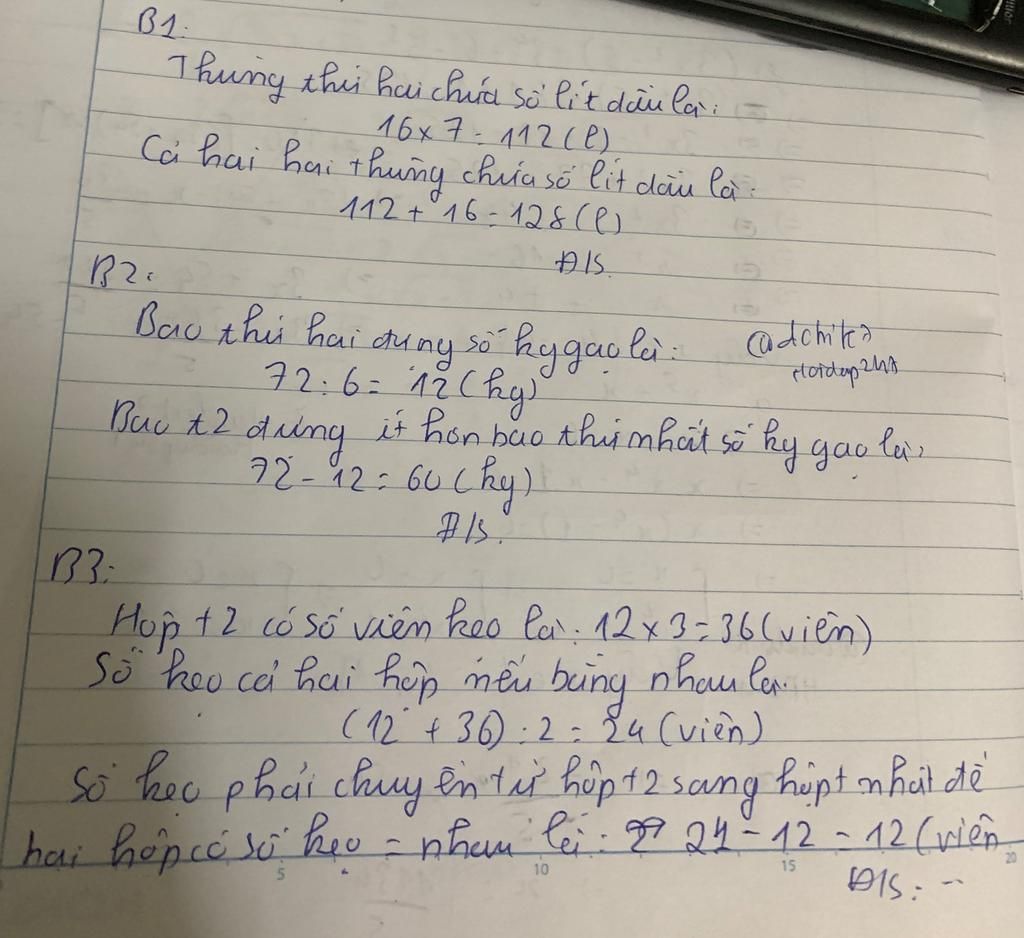 B1:
Thùng thứ hai chứa số lít dầu là:
16 x 7 = 112 (l)
Cả hai hai thùng chứa số lít dầu là:
112 + 16 = 128 (l)
Đ/S.
B2:
Bao thứ hai đựng số kg gạo là:
72 : 6 = 12 (kg)
Bao t2 đựng ít hơn bao thứ nhất số kg gạo là:
72 - 12 = 60 (kg)
Đ/S.
B3:
Hộp t2 có số viên kẹo là: 12 x 3 = 36 (viên)
Số kẹo cả hai hộp nếu bằng nhau là:
(12 + 36) : 2 = 24 (viên)
Số kẹo phải chuyển từ hộp t2 sang hộp t nhất để
hai hộp có số kẹo = nhau là: 24 - 12 = 12 (viên
Đ/S: --
5 10 15 20